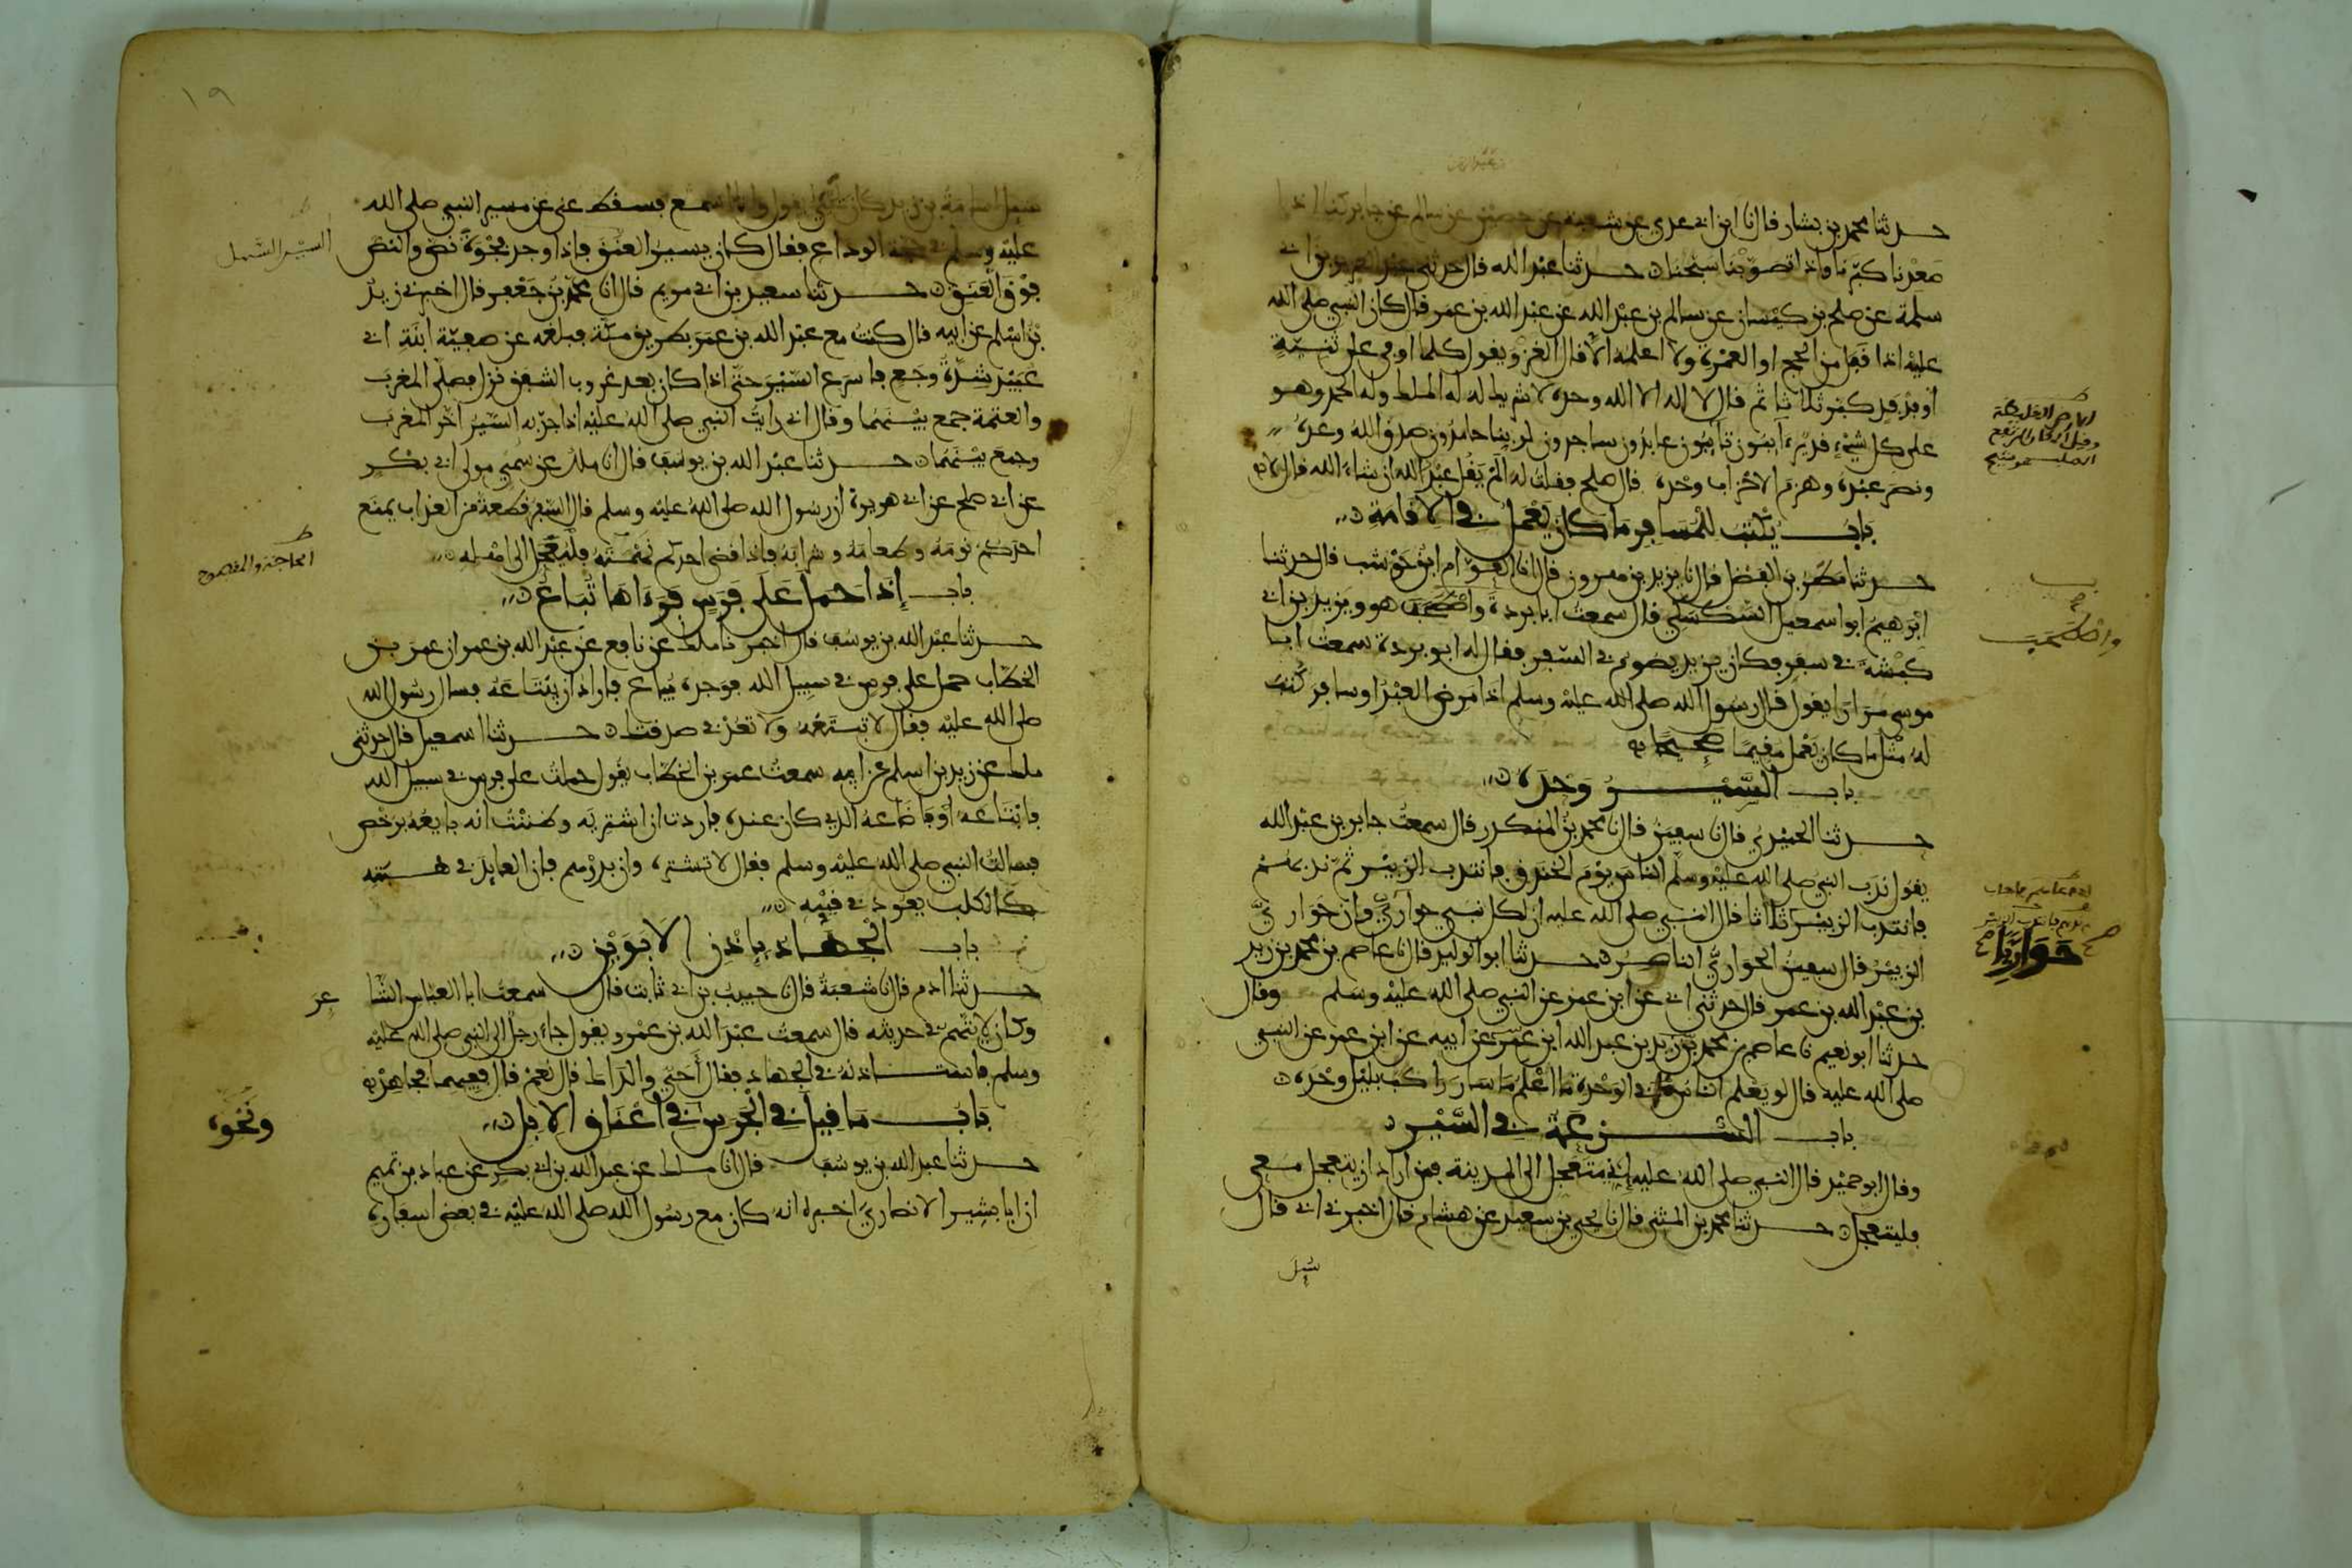 حدثنا محمد بن بشار قال نا ابن ابي عدي عن شعبة عن حصين عن سالم عن جابر كنا اذا
صعدنا كبرنا واذا تصوبنا سبحنا حدثنا عبد الله قال حدثني عبد العزيز بن ابي
سلمة عن صلح بن كيسان عن سالم بن عبد الله عن عبد الله بن عمر قال كان النبي صلى الله
عليه اذا قفل من الحج او العمرة ولا اعلمه الا قال الغزو يقول كلما اوفى على ثنية
او فدفد كبر ثلاثا ثم قال لا اله الا الله وحده لا شريك له له الملك وله الحمد وهو
على كل شيء قدير ءايبون تايبون عابدون ساجدون لربنا حامدون صدق الله وعده
ونصر عبده وهزم الاحزاب وحده قال صلح فقلت له الم يقل عبد الله ان شاء الله قال لا
باب يكتب للمسافر ما كان يعمل في الاقامة
حدثنا مطر بن الفضل قال نا يزيد بن هرون قال انا العوام ابن حوشب قال حدثنا
ابرهيم ابو اسمعيل السكسكي قال سمعت ابا بردة واصطحب هو ويزيد بن ابي
كبشة في سفر فكان يزيد يصوم في السفر فقال له ابو بردة سمعت ابا
موسى مرارا يقول قال رسول الله صلى الله عليه وسلم اذا مرض العبد او سافر كتب
له مثل ما كان يعمل مقيما صحيحا
باب السير وحده
حدثنا الحميدي قال نا سفين قال نا محمد بن المنكدر قال سمعت جابر بن عبد الله
يقول ندب النبي صلى الله عليه وسلم الناس يوم الخندق فانتدب الزبير ثم ندبهم
فانتدب الزبير ثلاثا قال النبي صلى الله عليه ان لكل نبي حواري وان حواري
الزبير قال سفين الحواري الناصر حدثنا ابو الوليد قال نا عاصم بن محمد بن زيد
بن عبد الله بن عمر قال حدثني ابي عن ابن عمر عن النبي صلى الله عليه وسلم وقال
حدثنا ابو نعيم نا عاصم بن محمد بن زيد بن عبد الله ابن عمر عن ابيه عن ابن عمر عن النبي
صلى الله عليه قال لو يعلم الناس ما في الوحدة ما اعلم ما سار راكب بليل وحده
باب السرعة في السير
وقال ابو حميد قال النبي صلى الله عليه اني متعجل الى المدينة فمن اراد ان يتعجل معي
فليتعجل حدثنا محمد بن المثنى قال نا يحيى بن سعيد عن هشام قال اخبرني ابي قال
سيل
واصطحب
حواريا
١٩
سيل اسامة بن زيد كان يحيى يقول وانا اسمع فسقط عني عن مسير النبي صلى الله
عليه وسلم في حجة الوداع فقال كان يسير العنق فاذا وجد فجوة نص والنص
فوق العنق حدثنا سعيد بن ابي مريم قال انا محمد بن جعفر قال اخبرني زيد
بن اسلم عن ابيه قال كنت مع عبد الله بن عمر بطريق مكة فبلغه عن صفية ابنة ابي
عبيد شدة وجع فاسرع السير حتى اذا كان بعد غروب الشفق نزل فصلى المغرب
والعتمة جمع بينهما وقال اني رايت النبي صلى الله عليه اذا جد به السير اخر المغرب
وجمع بينهما حدثنا عبد الله بن يوسف قال انا ملك عن سمي مولى ابي بكر
عن ابي صلح عن ابي هريرة ان رسول الله صلى الله عليه وسلم قال السفر قطعة من العذاب يمنع
احدكم نومه وطعامه وشرابه فاذا قضى احدكم نهمته فليعجل الى اهله
باب إذا حمل على فرس فرءاها تباع
حدثنا عبد الله بن يوسف قال اخبرنا ملك عن نافع عن عبد الله بن عمر ان عمر بن
الخطاب حمل على فرس في سبيل الله فوجده يباع فاراد ان يبتاعه فسال رسول الله
صلى الله عليه فقال لا تبتعه ولا تعد في صدقتك حدثنا اسمعيل قال حدثني
ملك عن زيد بن اسلم عن ابيه سمعت عمر بن الخطاب يقول حملت على فرس في سبيل الله
فابتاعه او فاضاعه الذي كان عنده فاردت ان اشتريه وظننت انه بايعه برخص
فسالت النبي صلى الله عليه وسلم فقال لا تشتره وان بدرهم فان العايد في هبته
كالكلب يعود في قيئه
باب الجهاد بإذن الابوين
حدثنا ادم قال نا شعبة قال نا حبيب بن ابي ثابت قال سمعت ابا العباس الشا
عر
وكان لا يتهم في حديثه قال سمعت عبد الله بن عمرو يقول جاء رجل الى النبي صلى الله عليه
وسلم فاستاذنه في الجهاد فقال أحي والداك قال نعم قال ففيهما فجاهد
باب ما قيل في الجرس في أعناق الإبل
ونحوه
حدثنا عبد الله بن يوسف قال انا ملك عن عبد الله بن ابي بكر عن عباد بن تميم
ان ابا بشير الانصاري اخبره انه كان مع رسول الله صلى الله عليه في بعض اسفاره
السير السهل